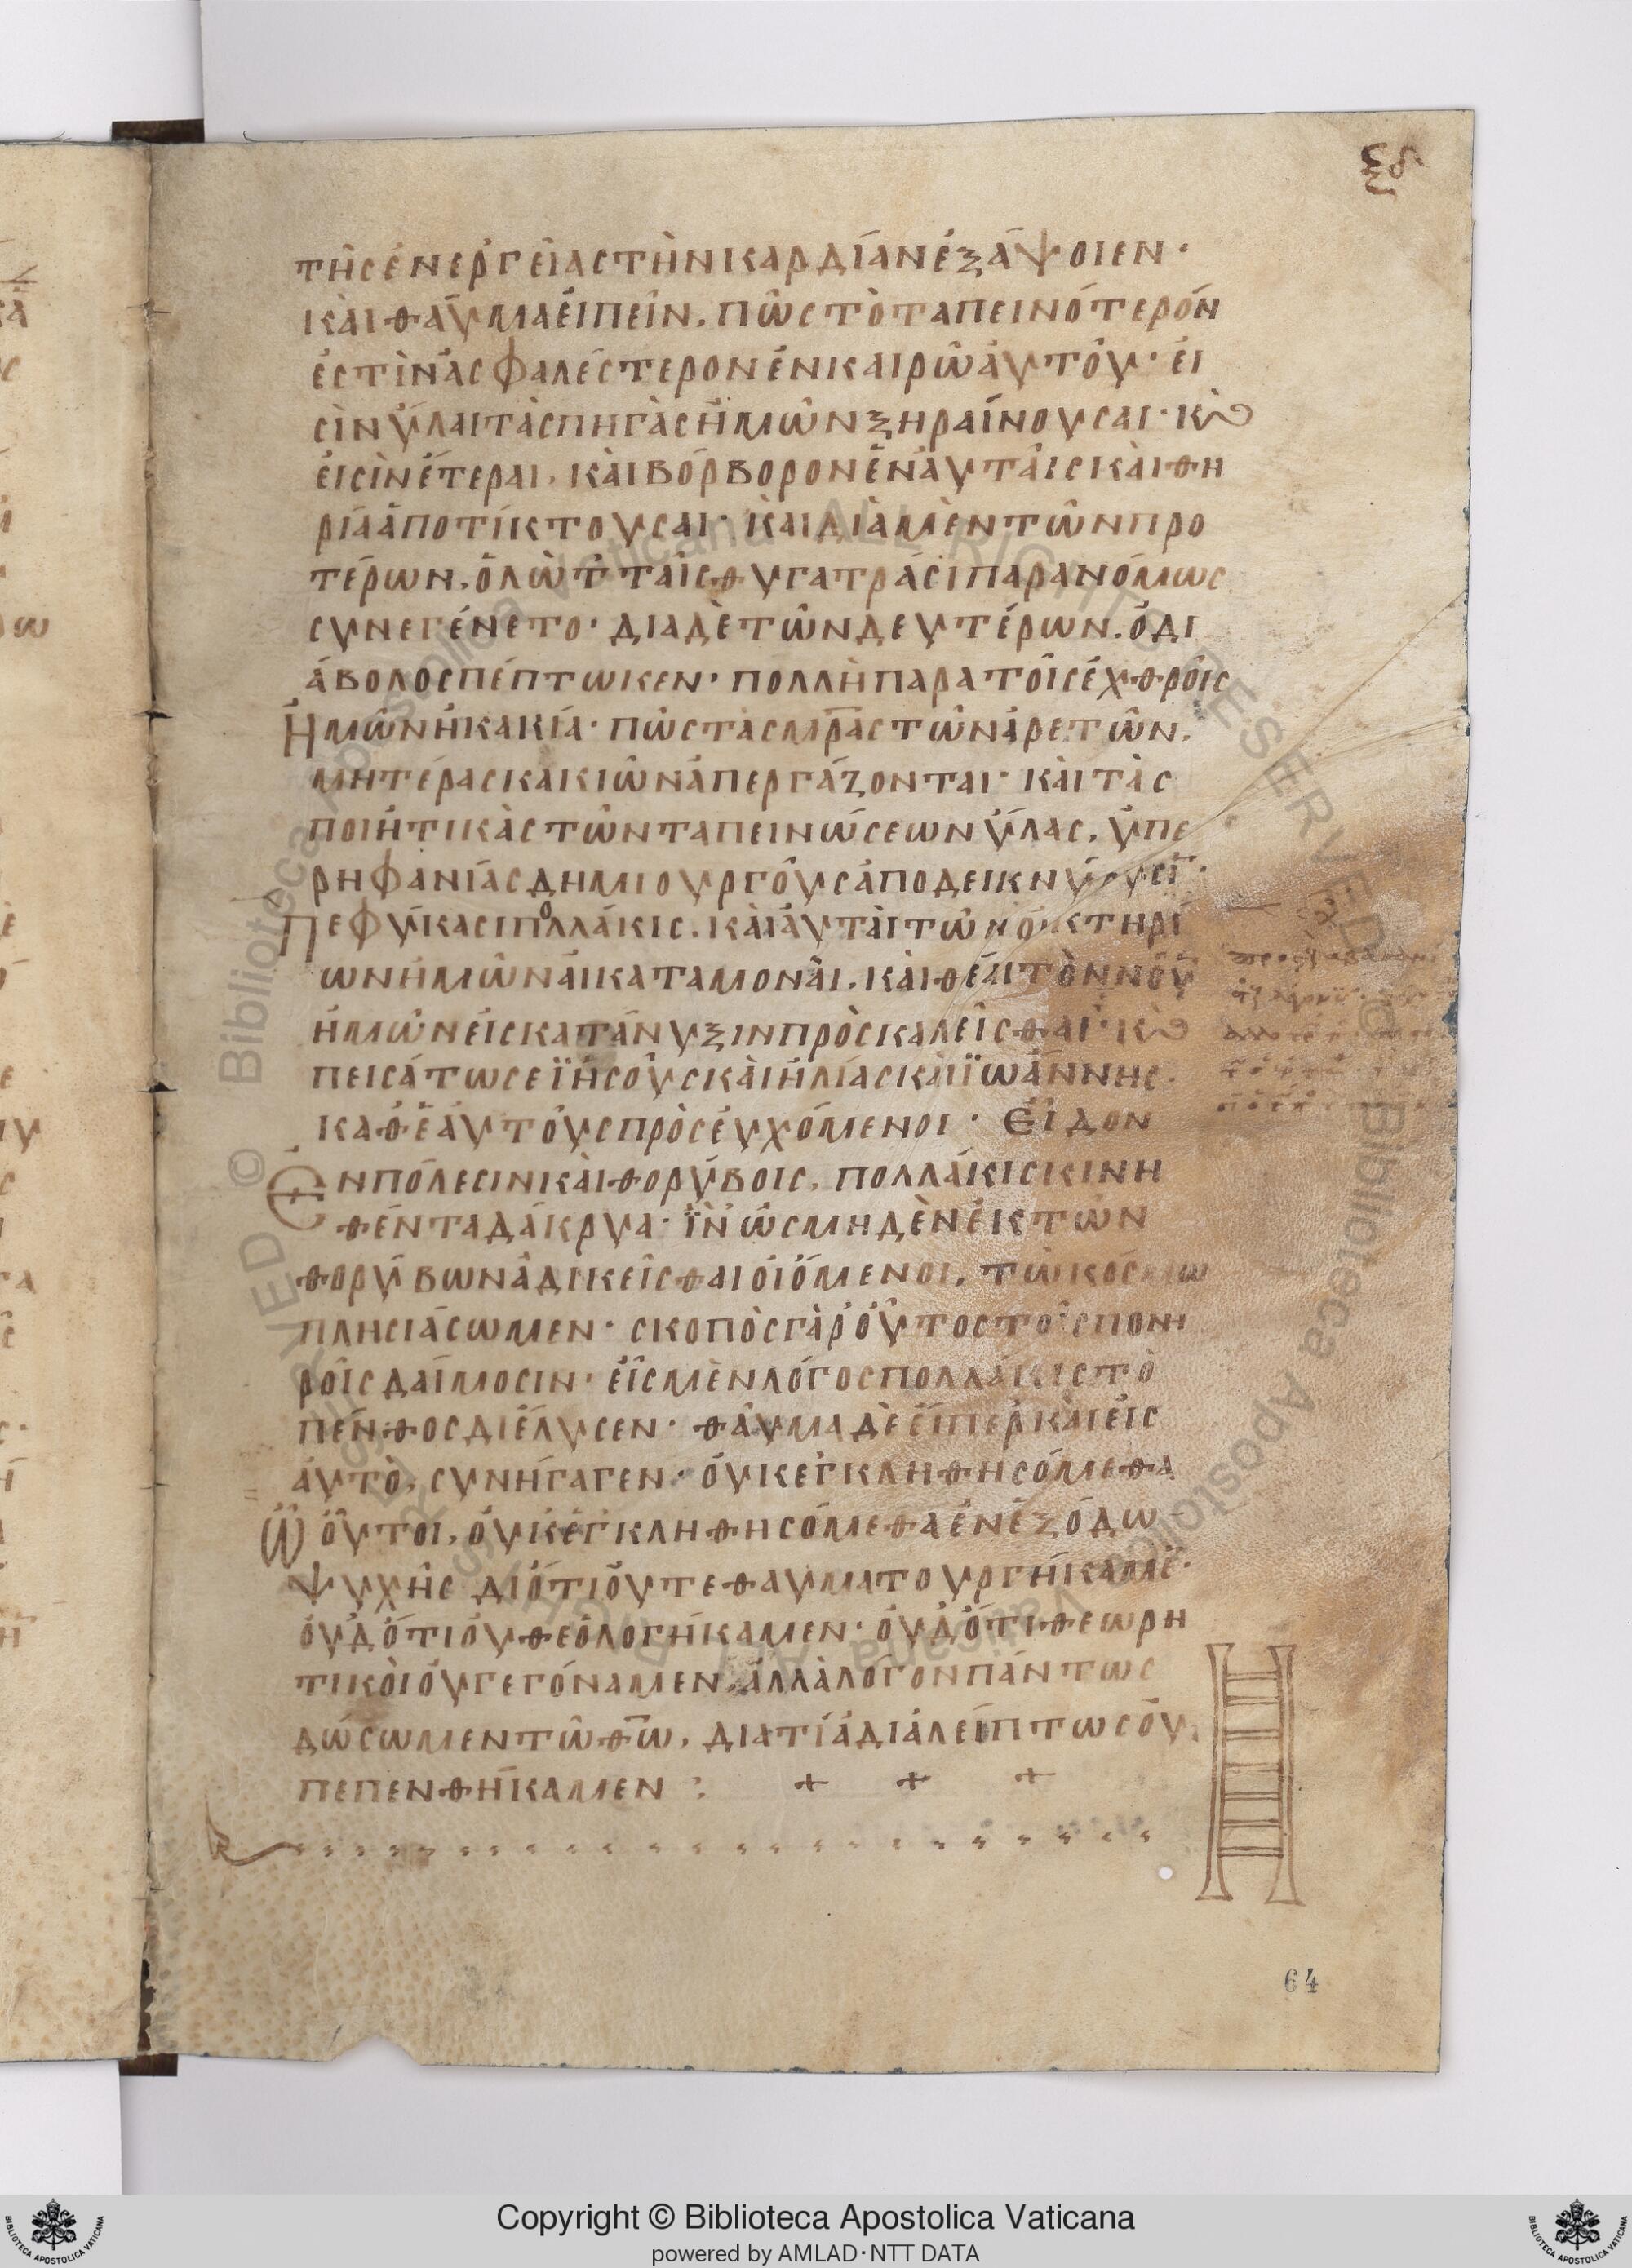 τῆς ἐνεργείας τὴν καρδίαν ἐξάψοιεν·
καὶ θαῦμα εἰπεῖν, πῶς τὸ ταπεινότερόν
ἐστιν ἀσφαλέστερον ἐν καιρῶ αὐτοῦ· εἰ
σὶν ὕλαι τὰς πηγὰς ἡμῶν ξηραίνουσαι· κ(αὶ)
εἰσὶν ἕτεραι, καὶ βόρβορον ἐν αὐταῖς καὶ θη
ρία ἀποτίκτουσαι· καὶ διὰ μὲν τῶν προ
τέρων, ὁ λὼτ ταῖς θυγατράσι παρανόμως
συνεγένετο· δια δὲ τῶν δευτέρων, ὁ δι
άβολος πέπτωκεν· πολλὴ παρα τοῖς ἐχθροῖς
ἡμῶν ἡ κακία· πῶς τὰς μρας τῶν ἀρετῶν,
μητέρας κακιῶν ἀπεργάζονται· καὶ τὰς
ποιητικὰς τῶν ταπεινώσεων ὕλας, ὑπε
ρηφανίας δημιουργοὺς ἀποδεικνύουσι·
Πεφύκασι πολλάκις, καὶ αὐταὶ τῶν οἰκτηρί
ων ἡμῶν αἱ καταμοναὶ, καὶ θέαι τὸν νοῦν
ἡμῶν εἰς κατάνυξιν προσκαλεῖσθαι· κ(αὶ)
πεισάτω σε ϊησοῦς καὶ ἠλίας καὶ ϊωάννης·
καθ' ἑαυτοὺς προσευχόμενοι· Εἶδον
ἐν πόλεσιν καὶ θορύβοις, πολλάκις κινη
θέντα δάκρυα· ϊν' ὡς μηδὲν ἐκ τῶν
θορύβων ἀδικεῖσθαι οἰόμενοι, τῶ κόσμω
πλησιάσωμεν· σκοπὸς γὰρ οὗτος τοῖς πονη
ροῖς δαίμοσιν· εἷς μὲν λόγος πολλάκις τὸ
πένθος διέλυσεν· θαῦμα δὲ εἴπερ καὶ εἷς
αὐτὸ, συνήγαγεν· οὐκ εγκληθησόμεθα
ὦ οὗτοι, οὐκ ἐγκληθησόμεθα ἐν ἐξόδω
ψυχῆς διότι οὐ τεθαυματουργήκαμε·
οὐδ' ὅτι οὐ θεολογήκαμεν· οὐδ' ὅτι θεωρη
τικοὶ οὐ γεγόναμεν, ἀλλὰ λόγον πάντως
δώσωμεν τῶ θω, διατί ἀδιαλείπτως οὐ
πεπενθήκαμεν : + + +
64
Copyright © Biblioteca Apostolica Vaticana
powered by AMLAD·NTT DATA